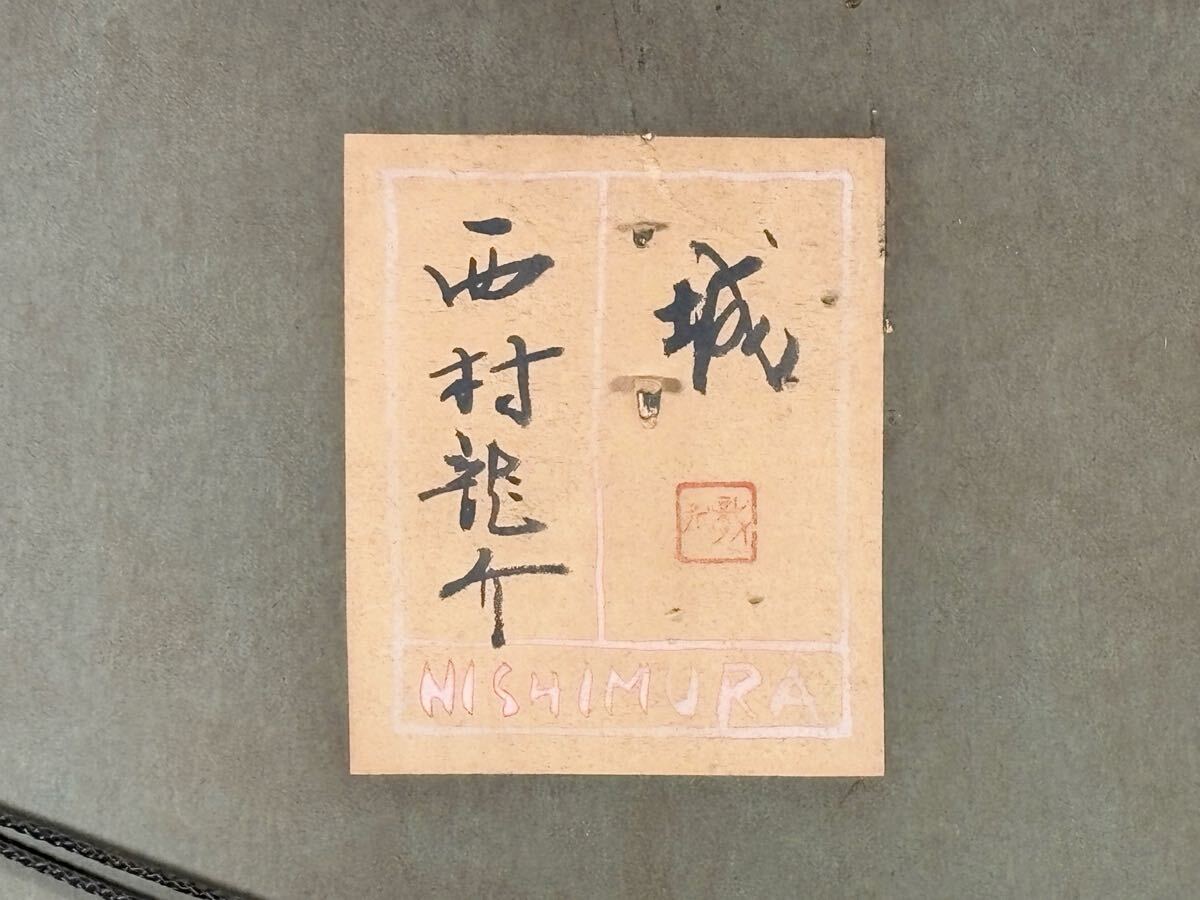 城
西村龍介
NISHIMURA